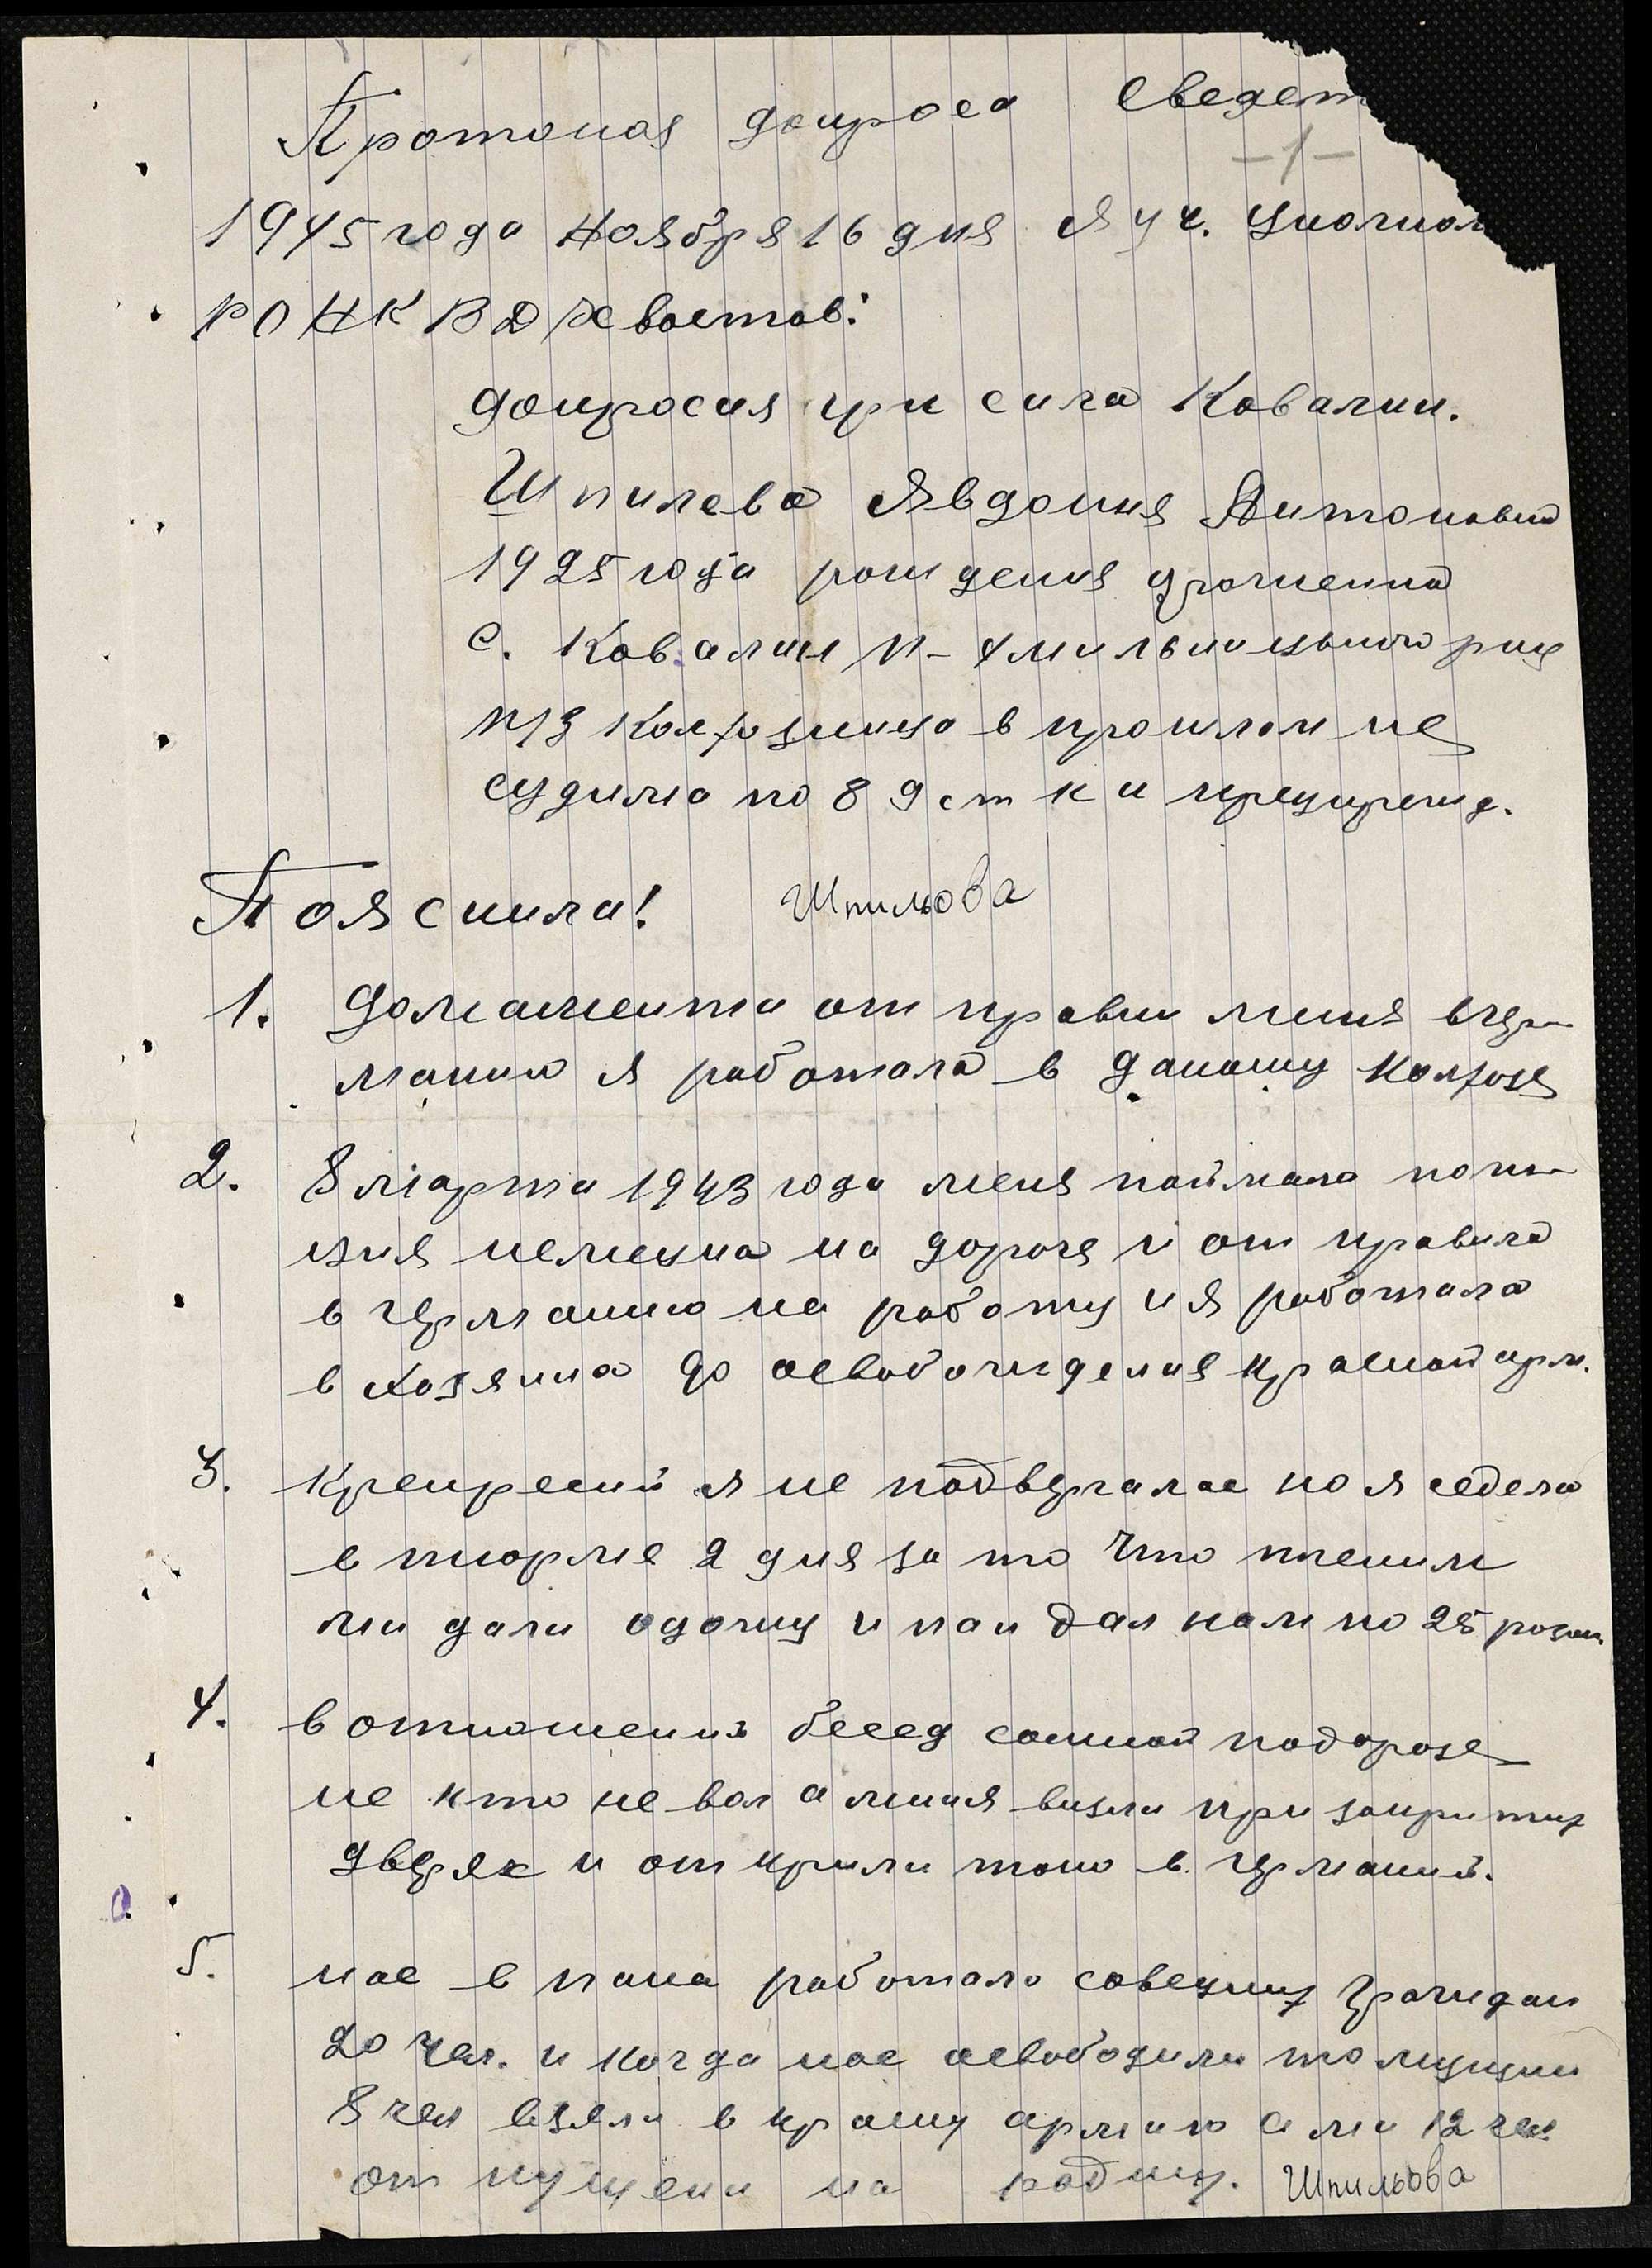 Протокол допроса Сведет
-1-
1945 года Ноября 16 дня я уч. уполном
РО НКВД Хвостов:
допросил гр-ку села Ковалии.
Шпилева Явдокия Антоновна
1925 года рождения урожениа
с. Ковалии П-Хмильницького р-на
п/з колхозница в прошлом не
судима по 89 ст к и предупрежд.
Пояснила! Шпильова
1. До момента отправки миня в Гер-
манию я работала в даному колхозе
2. 8 марта 1943 года меня поймала поли-
ция немецка на дороге и отправила
в германию на работу и я работала
в хозяина до освобождения красной арм.
3. Крепресий я не подвергалас но я седела
в тюрме 2 дня за то что пленим
ми дали одежу и пан дал нам по 25 розг.
4. в отношения бесед сомной подорозе
не кто не вол а миня визли при закритих
дверях и открили токо в германий.
5. нас в пана работало совецких граждан
20 чел. и когда нас освободили то мущин
8 чел взяли в красну армию а ми 12 чел
отпущени на родину. Шпильова